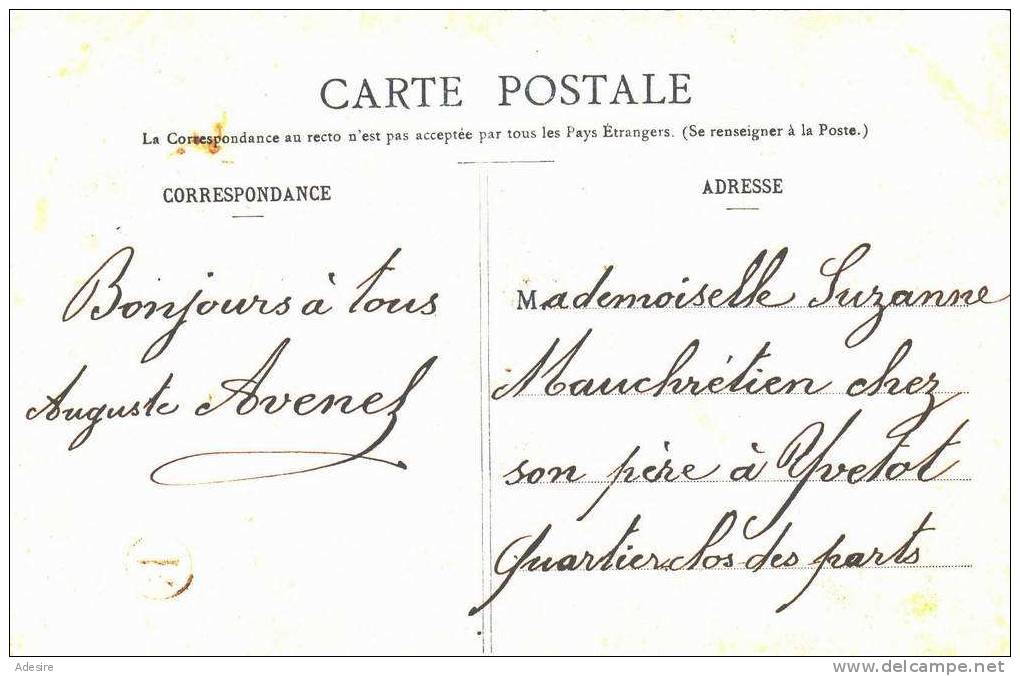 CARTE POSTALE
La Correspondance au recto n'est pas acceptée par tous les Pays Étrangers. (Se renseigner à la Poste.)
CORRESPONDANCE
Bonjours à tous
Auguste Avenel
ADRESSE
Mademoiselle Suzanne
Mauchrétien chez
son père à Yvetot
Quartier clos des parts
Adesire
www.delcampe.net